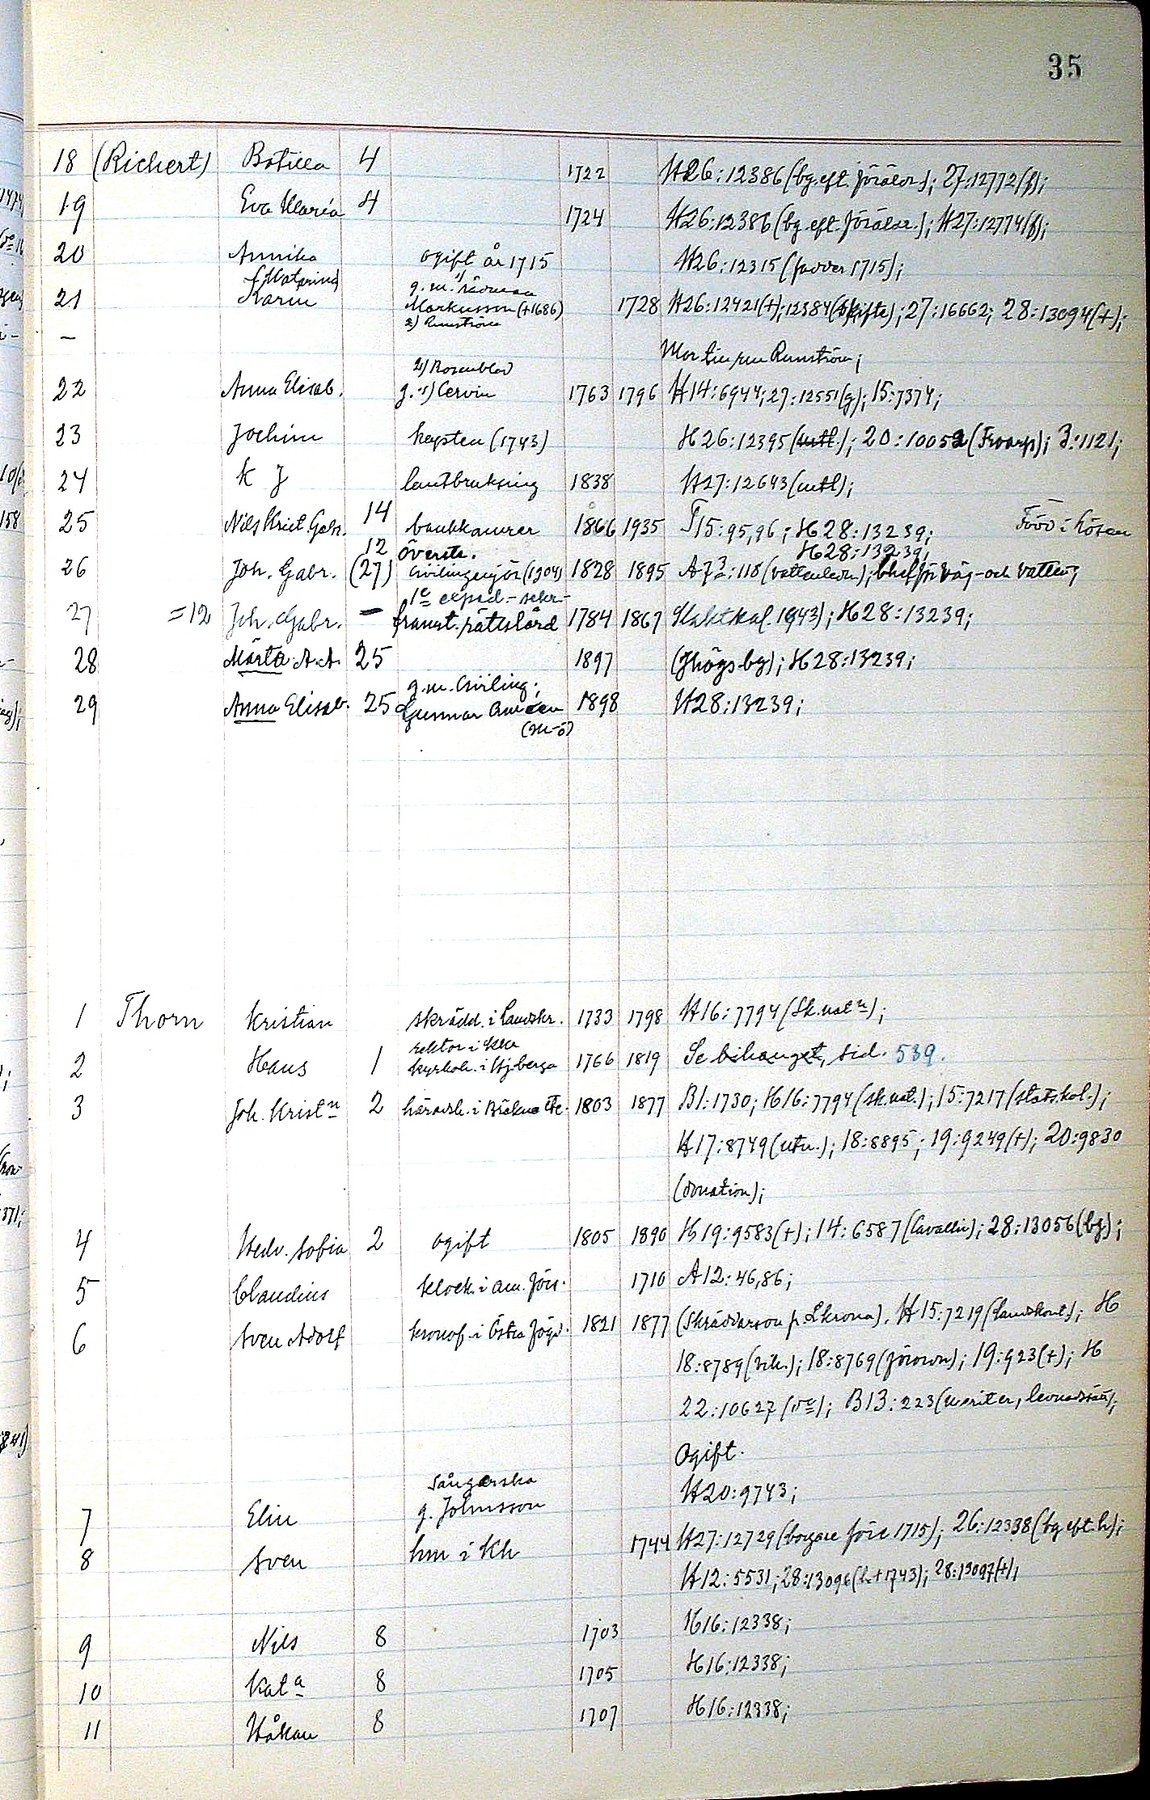 35
18 (Richert) Botilla 4 1722 H26:12386 (bg. eft. föräldr.); 27:12772(f);
19 Eva Maria 4 1724 H26:12386 (bg. eft. föräldr.); H27:12774(f);
20 Annika ogift år 1715 H26:12315 (fadder 1715);
(Katarina) g.m. 1)
21 Karin Markusson (+1686) 1728 H26:12421(+); 12384 (skifte); 27:16662; 28:13094(+);
2) Runström
– Runström;
2) Rosenblad
22 Anna Elisab. g. 1) Cervin 1763 1796 H14:6944; 27:12551(g); 15:7374;
23 Jochim kapten (1743) H26:12395 (); 20:10052 (); 3:1121;
24 K J lantbruksing 1838 H27:12643 (utl);
25 Nils Krist. Gabr. 14 bankkamrer 1866 1935 T15:95,96; H28:13239; Född i Hösan
12 överste. H28:13239;
26 Joh. Gabr. (27) civilingenjör (1904) 1828 1895 A73:118 (); chef för väg- och vattenb;
1e exped.-sekr-
27 =12 Joh. Gabr. – framst. rättslärd 1784 1867 (Taktkal. 1943); H28:13239;
28 Märta A.A 25 1897 (Jhögsby); H28:13239;
g.m. civiling.;
29 Anna Elisab. 25 Gunnar 1898 H28:13239;
(m-ö)
1 Thorn Kristian skrädd. i Landskr. 1733 1798 H16:7794 (Sk. natn);
rektor i Kka
2 Hans 1 kyrkoh. i Hjbergа 1766 1819 Se bihanget, sid. 539.
3 Joh. Kristn 2 häradsh. i Bräkne etc. 1803 1877 B1:1730; H16:7794 (sk. nat.); 15:7217 (statskal.);
H17:8749 (utn.); 18:8895; 19:9249(+); 20:9830
(donation);
4 Hedv. Sofia 2 ogift 1805 1890 H19:9583(+); 14:6587 (Cavallin); 28:13056 (bg);
5 Claudius klock. i Am. förs. 1710 A12:46,86;
6 Sven Adolf kronof. i Östra fögd. 1821 1877 (Skräddarson fr. Lkrona), H15:7219 (Landskont); H
18:8789 (vik.); 18:8769 (förordn); 19:923(+); H
22:10627 (de); B13:223 (meriter, levnadssätt);
Ogift.
sångerska H20:9743;
7 Elin g. Johnsson
8 Sven hm i Kh 1744 H27:12729 (borgare före 1715); 26:12338 (bg eft. h);
H12:5531; 28:13096 (h.+1743); 28:13097(+);
9 Nils 8 1703 H16:12338;
10 Kata 8 1705 H16:12338;
11 Håkan 8 1707 H16:12338;